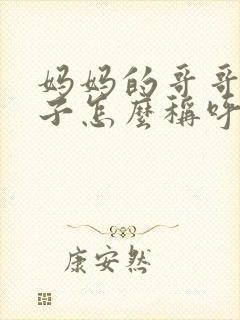 妈妈的哥哥
子怎麼稱呼
康安然